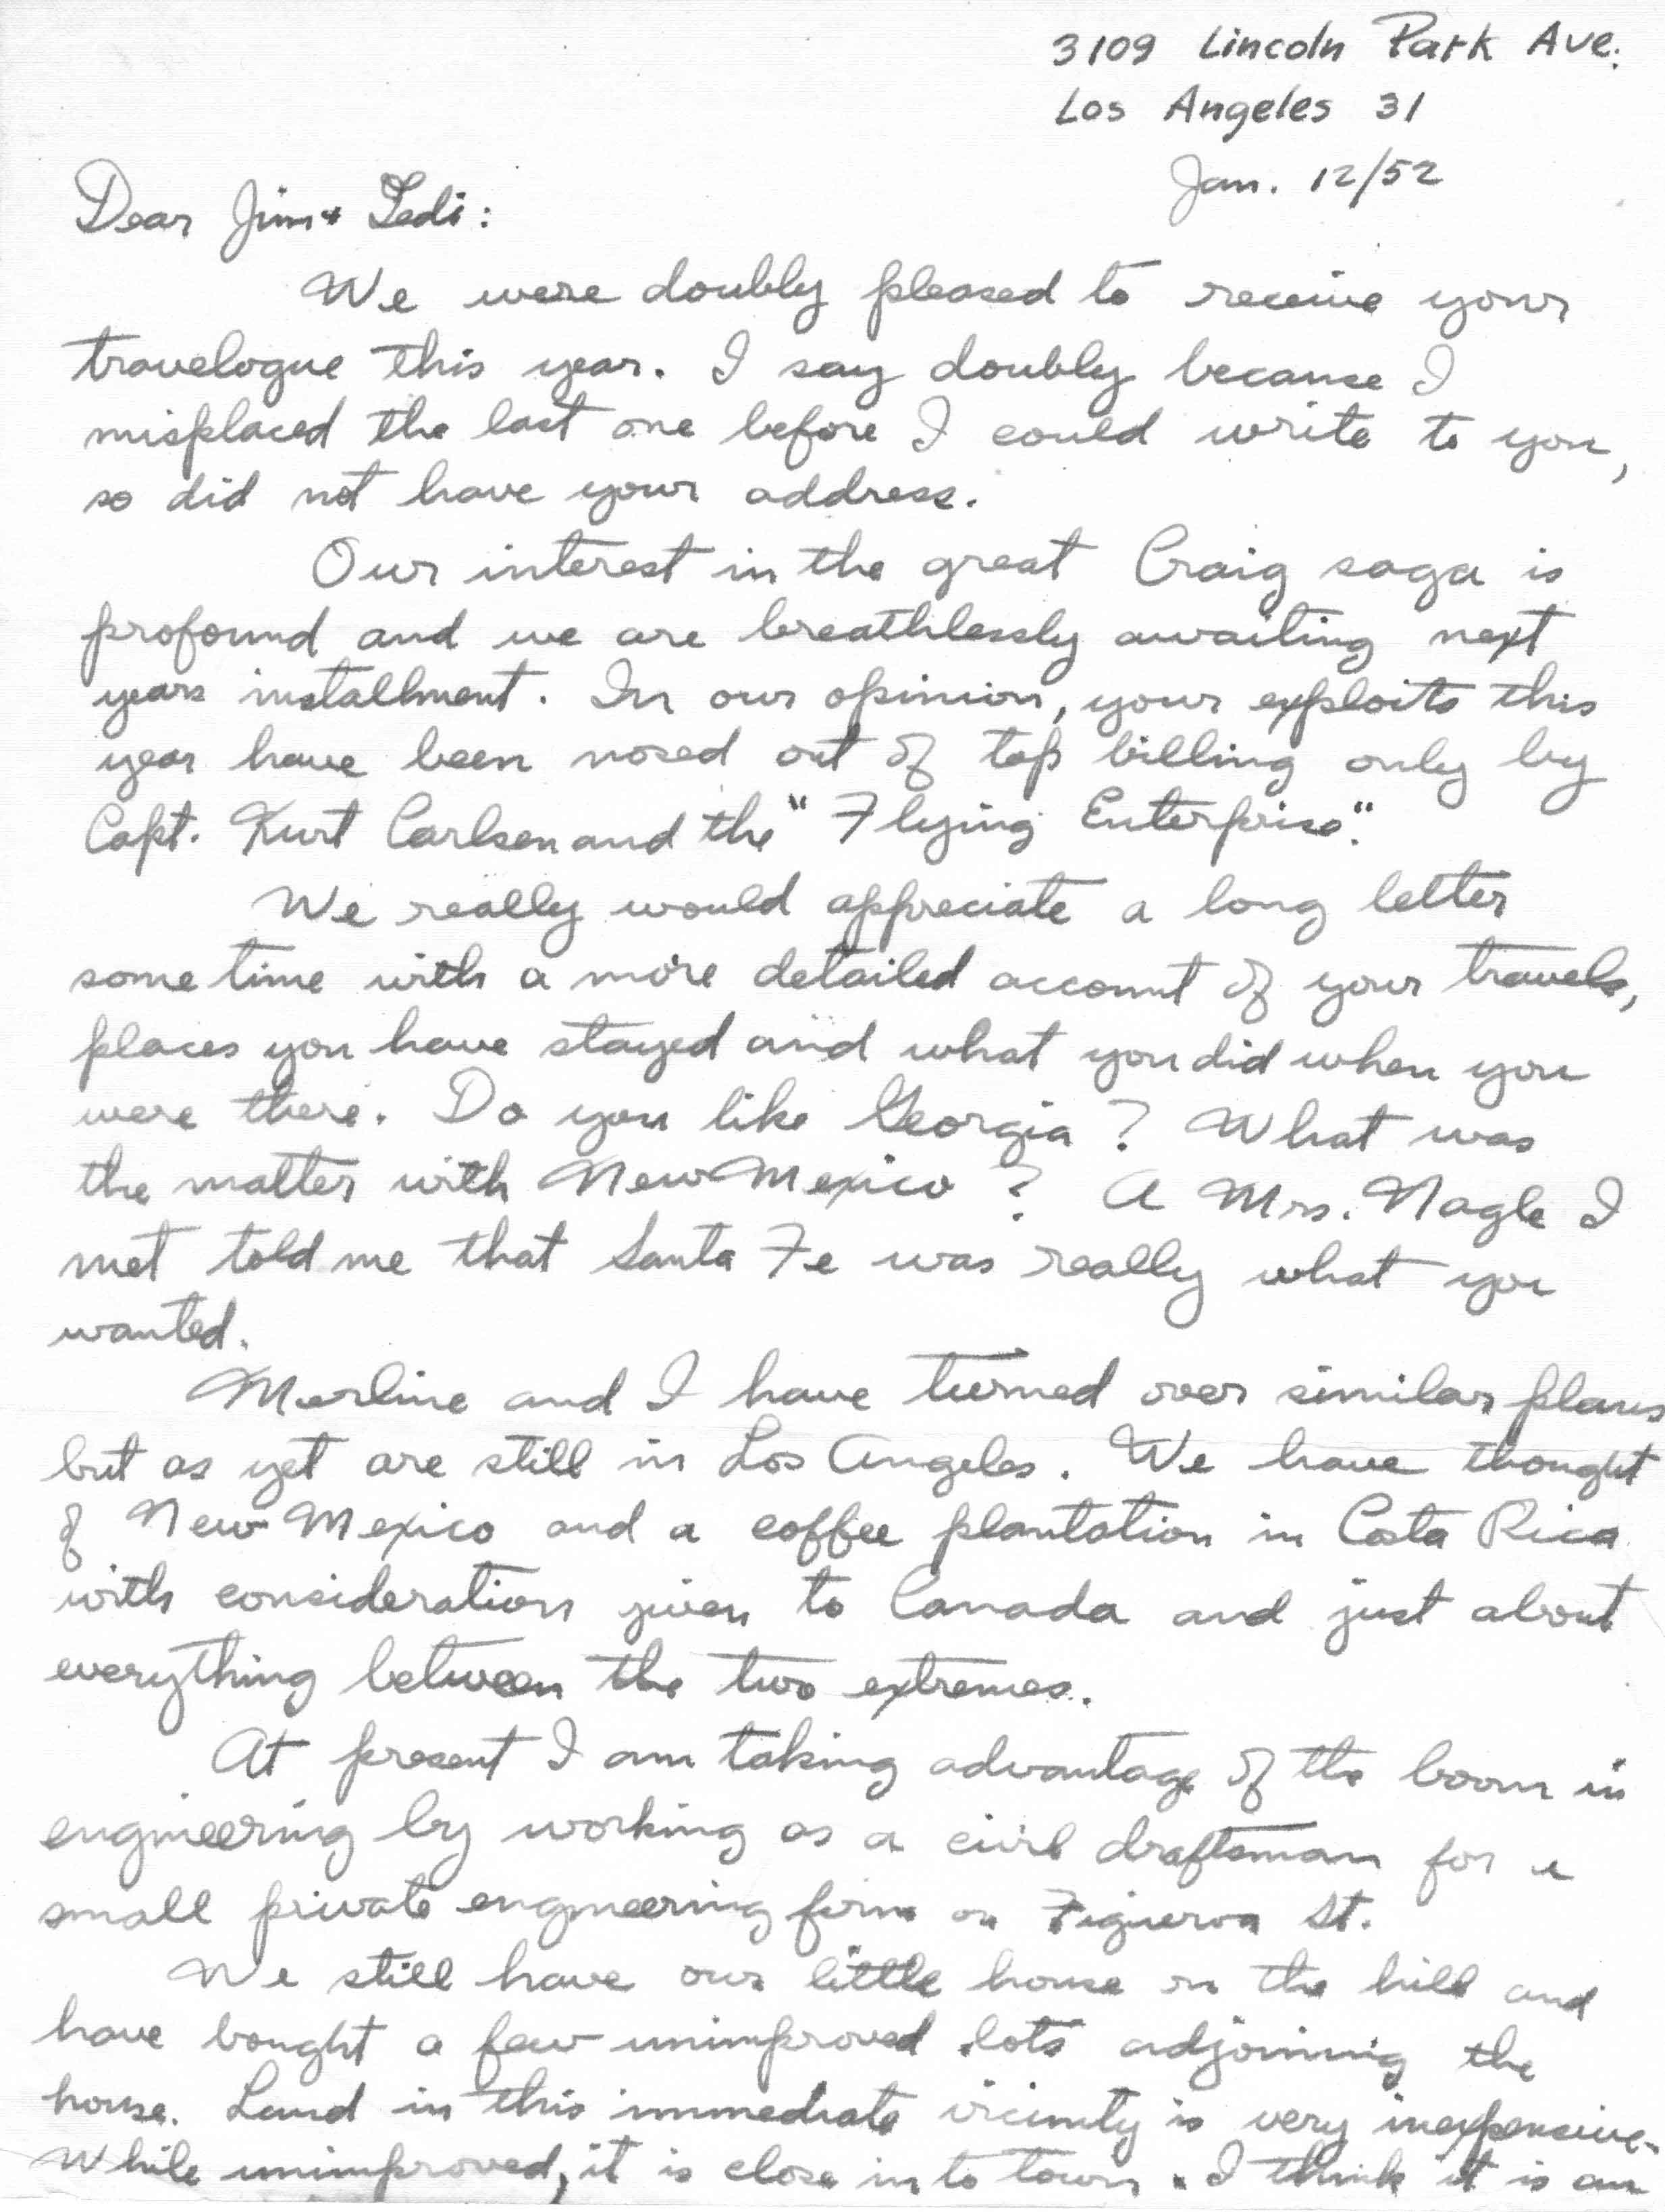 3109 Lincoln Park Ave.
Los Angeles 31
Jan. 12/52
Dear Jim & Tedi:
We were doubly pleased to receive your
travelogue this year. I say doubly because I
misplaced the last one before I could write to you,
so did not have your address.
Our interest in the great Craig saga is
profound and we are breathlessly awaiting next
years installment. In our opinion, your exploits this
year have been nosed out of top billing only by
Capt. Kurt Carlsen and the "Flying Enterprise".
We really would appreciate a long letter
some time with a more detailed account of your travels,
places you have stayed and what you did when you
were there. Do you like Georgia? What was
the matter with New Mexico? A Mrs. Nagle I
met told me that Santa Fe was really what you
wanted.
Merline and I have turned over similar plans
but as yet are still in Los Angeles. We have thought
of New Mexico and a coffee plantation in Costa Rica
with consideration given to Canada and just about
everything between the two extremes.
At present I am taking advantage of the boom in
engineering by working as a civil draftsman for a
small private engineering firm on Figueroa St.
We still have our little house on the hill and
have bought a few unimproved lots adjoining the
house. Land in this immediate vicinity is very inexpensive.
While unimproved, it is close in to town. I think it is an